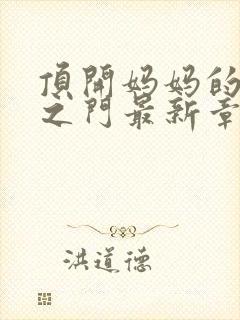 頂開妈妈的
之門最新章
洪道德